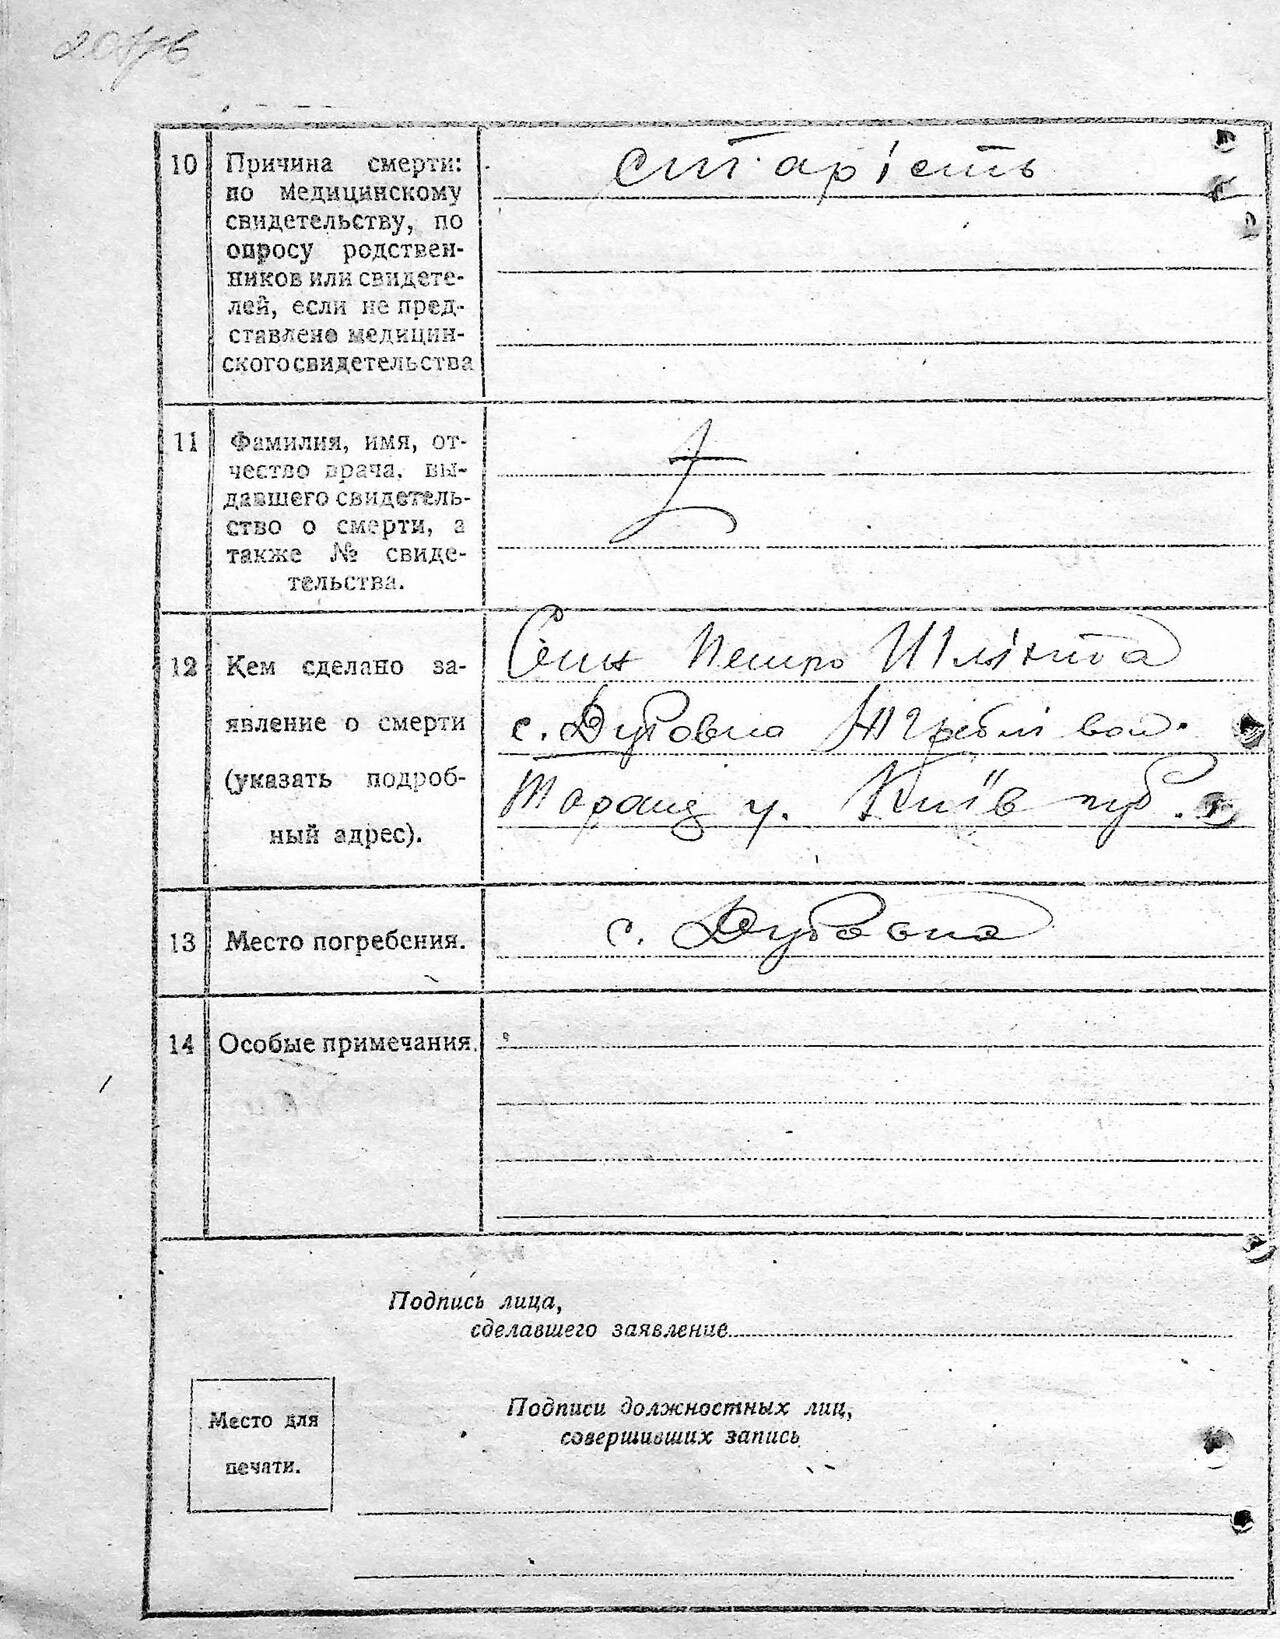 10 Причина смерти: старість
по медицинскому
свидетельству, по
опросу родствен-
ников или свидете-
лей, если не пред-
ставлено медицин-
ского свидетельства
11 Фамилия, имя, от-
чество врача, вы-
давшего свидетель-
ство о смерти, а
также № свиде-
тельства.
12 Кем сделано за-
явление о смерти
(указать подроб-
ный адрес).
Син Петро Шлінта
с. Дубовка вол.
у. Київ губ.
13 Место погребения. с. Дубовка
14 Особые примечания.
Подпись лица,
сделавшего заявление
Подписи должностных лиц,
совершивших запись
Место для
печати.